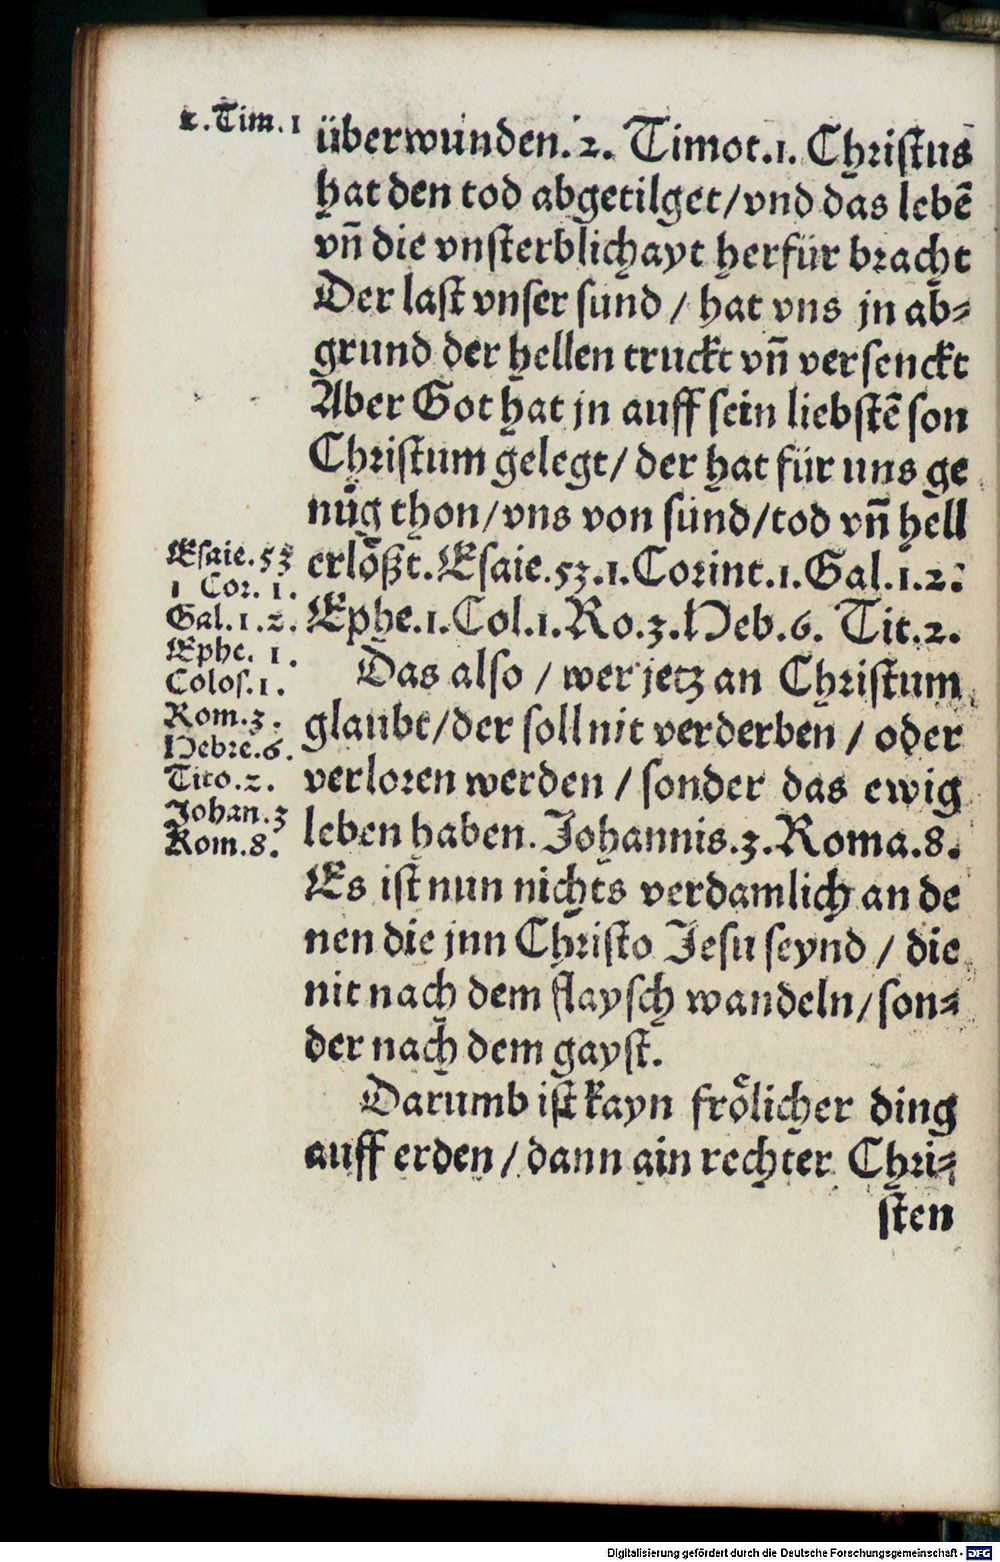 2.Tim.1
überwunden. 2. Timot.1. Christus
hat den tod abgetilget/vnd das lebē
vn̄ die vnsterblichayt herfür bracht
Der last vnser sund / hat vns jn ab⸗
grund der hellen truckt vn̄ versenckt
Aber Got hat jn auff sein liebstē son
Christum gelegt/ der hat für uns ge
nůg thon/vns von sünd/tod vn̄ hell
erlößt. Esaie.53.1.Corint.1.Gal.1.2.
Ephe.1.Col.1.Ro.3.Heb.6. Tit.2.
Das also / wer jetz an Christum
glaubt/der soll nit verderben / oder
verloren werden / sonder das ewig
leben haben. Johannis.3.Roma.8.
Es ist nun nichts verdamlich an de
nen die jnn Christo Jesu seynd / die
nit nach dem flaysch wandeln/son⸗
der nach dem gayst.
Darumb ist kayn frölicher ding
auff erden / dann ain rechter Chri⸗
sten
Esaie.53
1 Cor. 1.
Gal.1.2.
Ephe. 1.
Colos.1.
Rom.3.
Hebre.6.
Tito.2.
Johan.3
Rom.8.
Digitalisierung gefördert durch die Deutsche Forschungsgemeinschaft - DFG